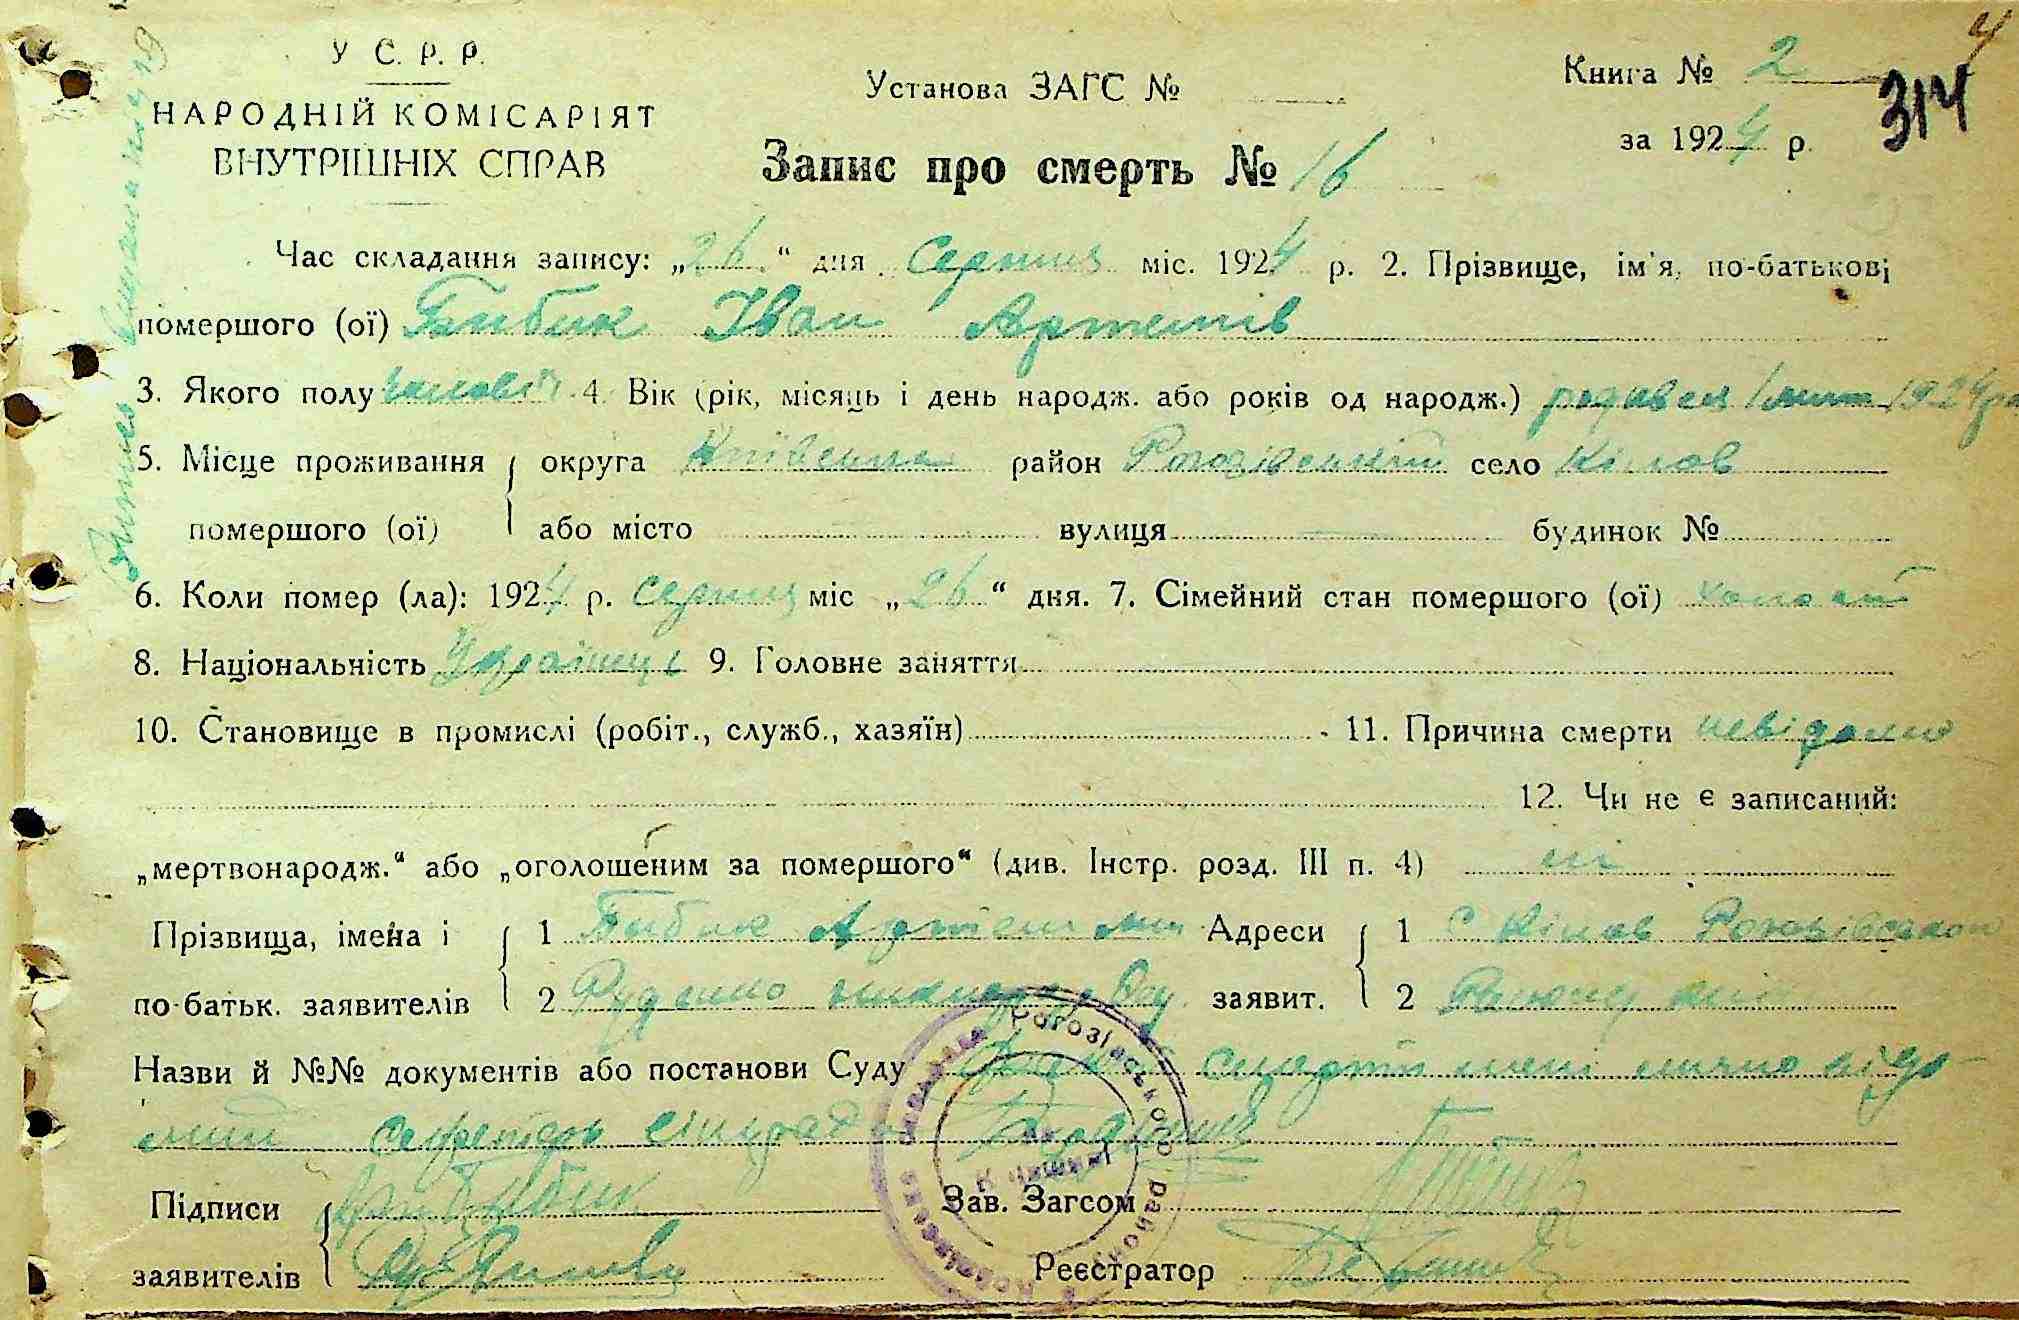 У С. Р. Р.
НАРОДНІЙ КОМІСАРІЯТ
ВНУТРІШНІХ СПРАВ
Установа ЗАГС №
Книга № 2
314
за 1924 р.
Запис про смерть № 16
Час складання запису: „26“ дня Серпня міс. 1924 р. 2. Прізвище, ім'я, по-батькові
помершого (ої) Бибик Іван Артемів
3. Якого полу 4. Вік (рік, місяць і день народж. або років од народж.) родився 1924
5. Місце проживання округа Київська район Рогозівський село Кілов
помершого (ої) або місто вулиця будинок №
6. Коли помер (ла): 1924 р. серпня міс „26“ дня. 7. Сімейний стан помершого (ої)
8. Національність 9. Головне заняття
10. Становище в промислі (робіт., служб., хазяїн) 11. Причина смерти невідомо
12. Чи не є записаний:
„мертвонародж.“ або „оголошеним за помершого“ (див. Інстр. розд. III п. 4) ні
Прізвища, імена і 1 Бибик Артем Адреси 1 с Кілов Рогозівського
по-батьк. заявителів 2 Руденко заявит. 2
Назви й №№ документів або постанови Суду смерти мені
секретарь сільради
Підписи Бибик Зав. Загсом
заявителів Реєстратор
Рогозівського району